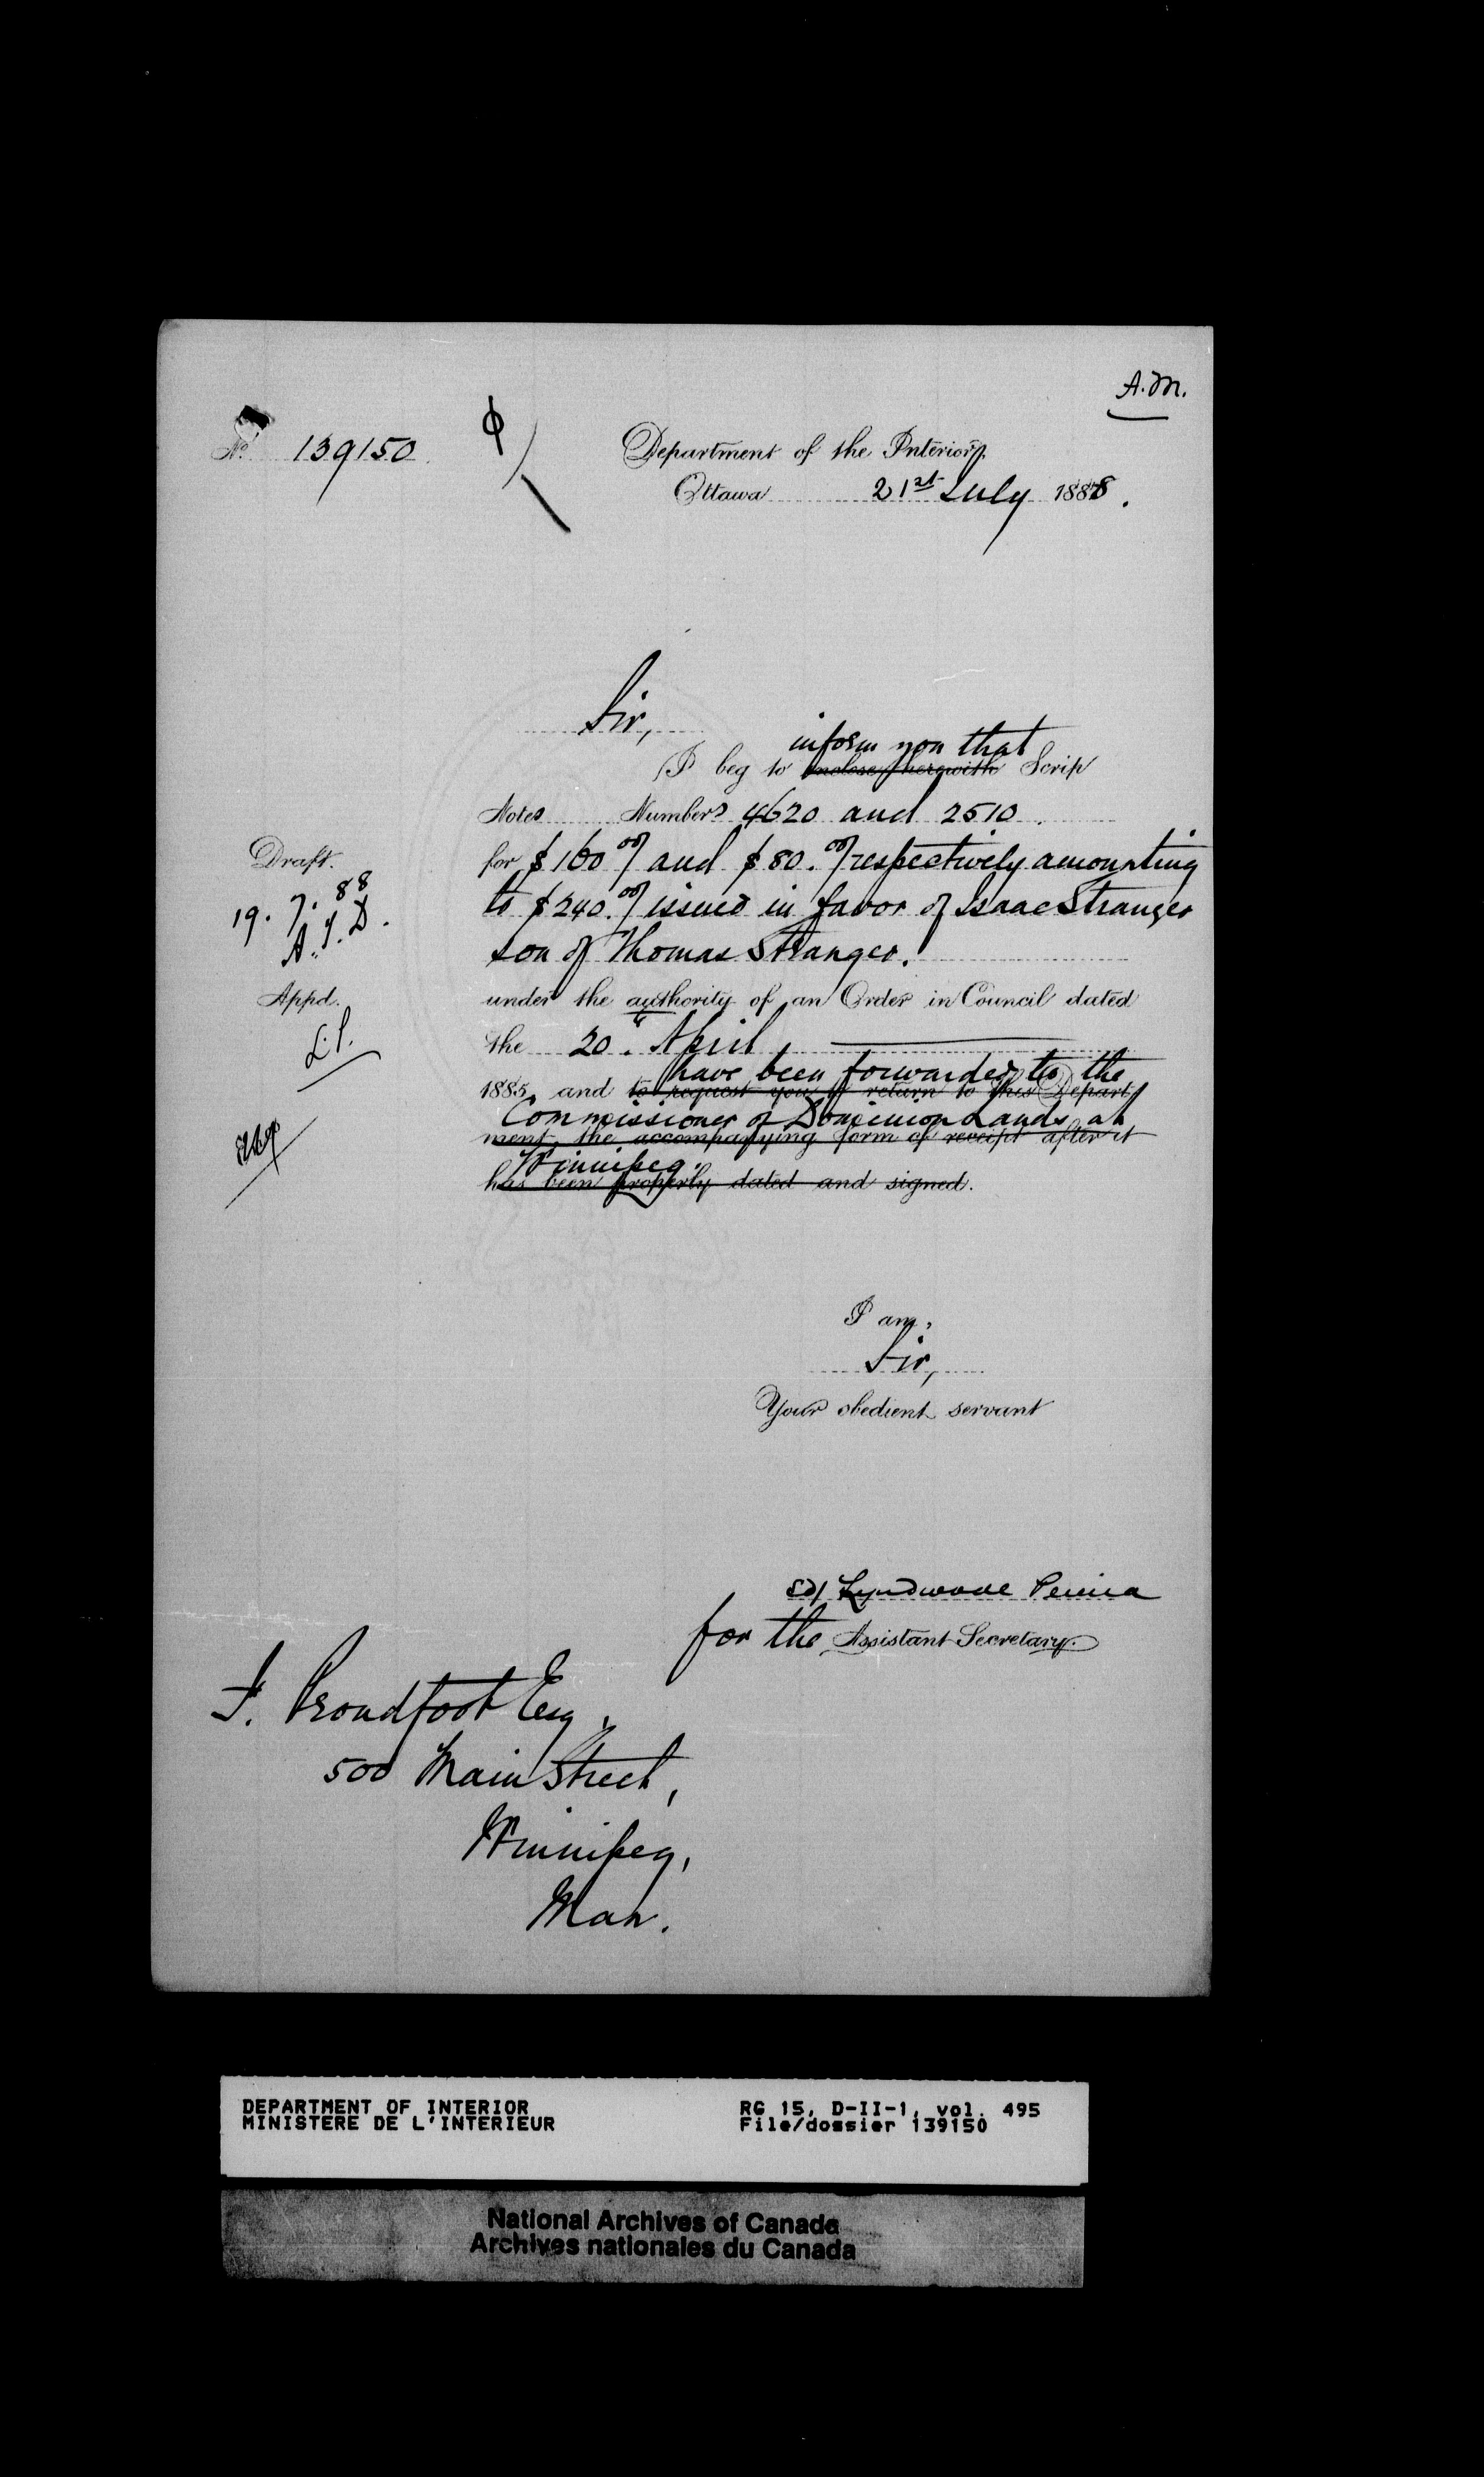 A.M.
No. 139150
Department of the Interior,
Ottawa 21st July 1888.
Sir,
inform you that
I beg to enclose herewith Scrip
Notes Numbers 4620 and 2510.
Draft.
19. 7. 88
A.J.D.
for $160.00/ and $80.00/ respectively amounting
to $240.00/ issued in favor of Isaac Stranger
son of Thomas Stranger.
Appd.
L.P.
under the authority of an Order in Council dated
the 20th April
have been forwarded to the
1885, and to request you to return to this Depart
Commissioner of Dominion Lands at
ment, the accompanying form of receipt after it
Winnipeg.
has been properly dated and signed.
I am,
Sir,
Your obedient servant
Sd/ Lyndwode Pereira
for the Assistant Secretary.
F. Proudfoot Esq,
500 Main Street,
Winnipeg,
Man.
DEPARTMENT OF INTERIOR
MINISTERE DE L'INTERIEUR
RG 15, D-II-1, vol. 495
File/dossier 139150
National Archives of Canada
Archives nationales du Canada